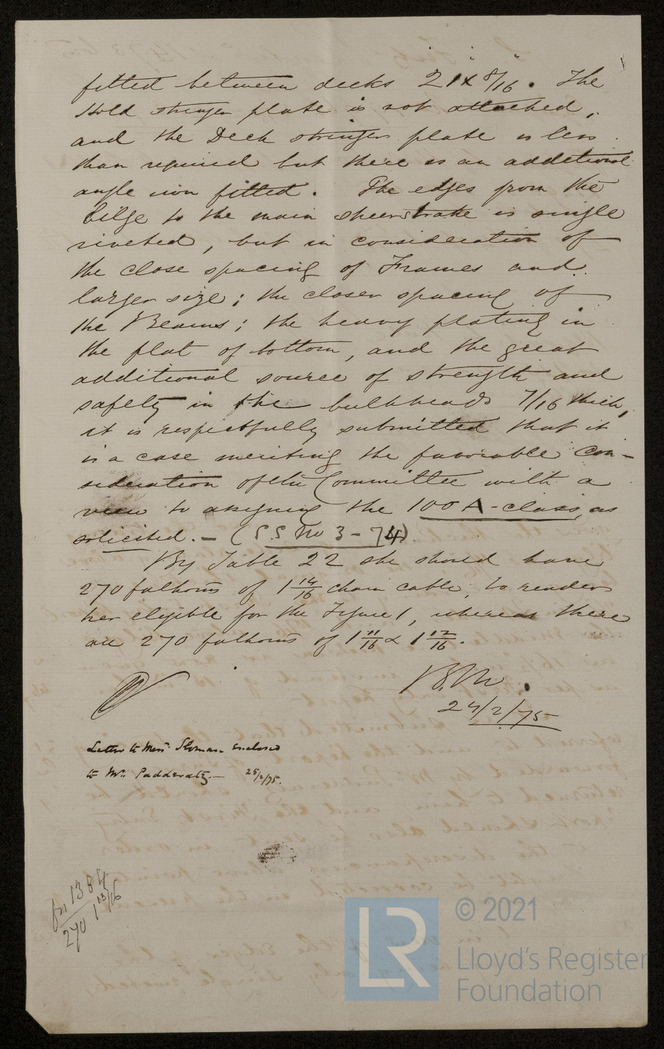 fitted between decks 21 x 8/16. The
Hold stringer plate is not attached,
and the Deck stringer plate is less
than required but there is an additional
angle iron fitted. The edges from the
bilge to the main sheerstrake is single
riveted, but in consideration of
the close spacing of Frames and
larger size; the closer spacing of
the Beams; the heavy plating in
the flat of bottom, and the great
additional source of strength and
safety in the bulkheads 7/16 thick,
it is respectfully submitted that it
is a case meriting the favorable con-
sideration of the Committee with a
view to assigning the 100 A-class, as
solicited. — (S.S. No 3 - 74)
By Table 22 she should have
270 fathoms of 1 14/16 chain cable, to render
her eligible for the Figure 1, whereas there
are 270 fathoms of 1 11/16 & 1 12/16.
24/2/75
Letter to Messrs enclosed
to Mr. 25/2/75.
270 1 13/16
© 2021
LR
Lloyd's Register
Foundation